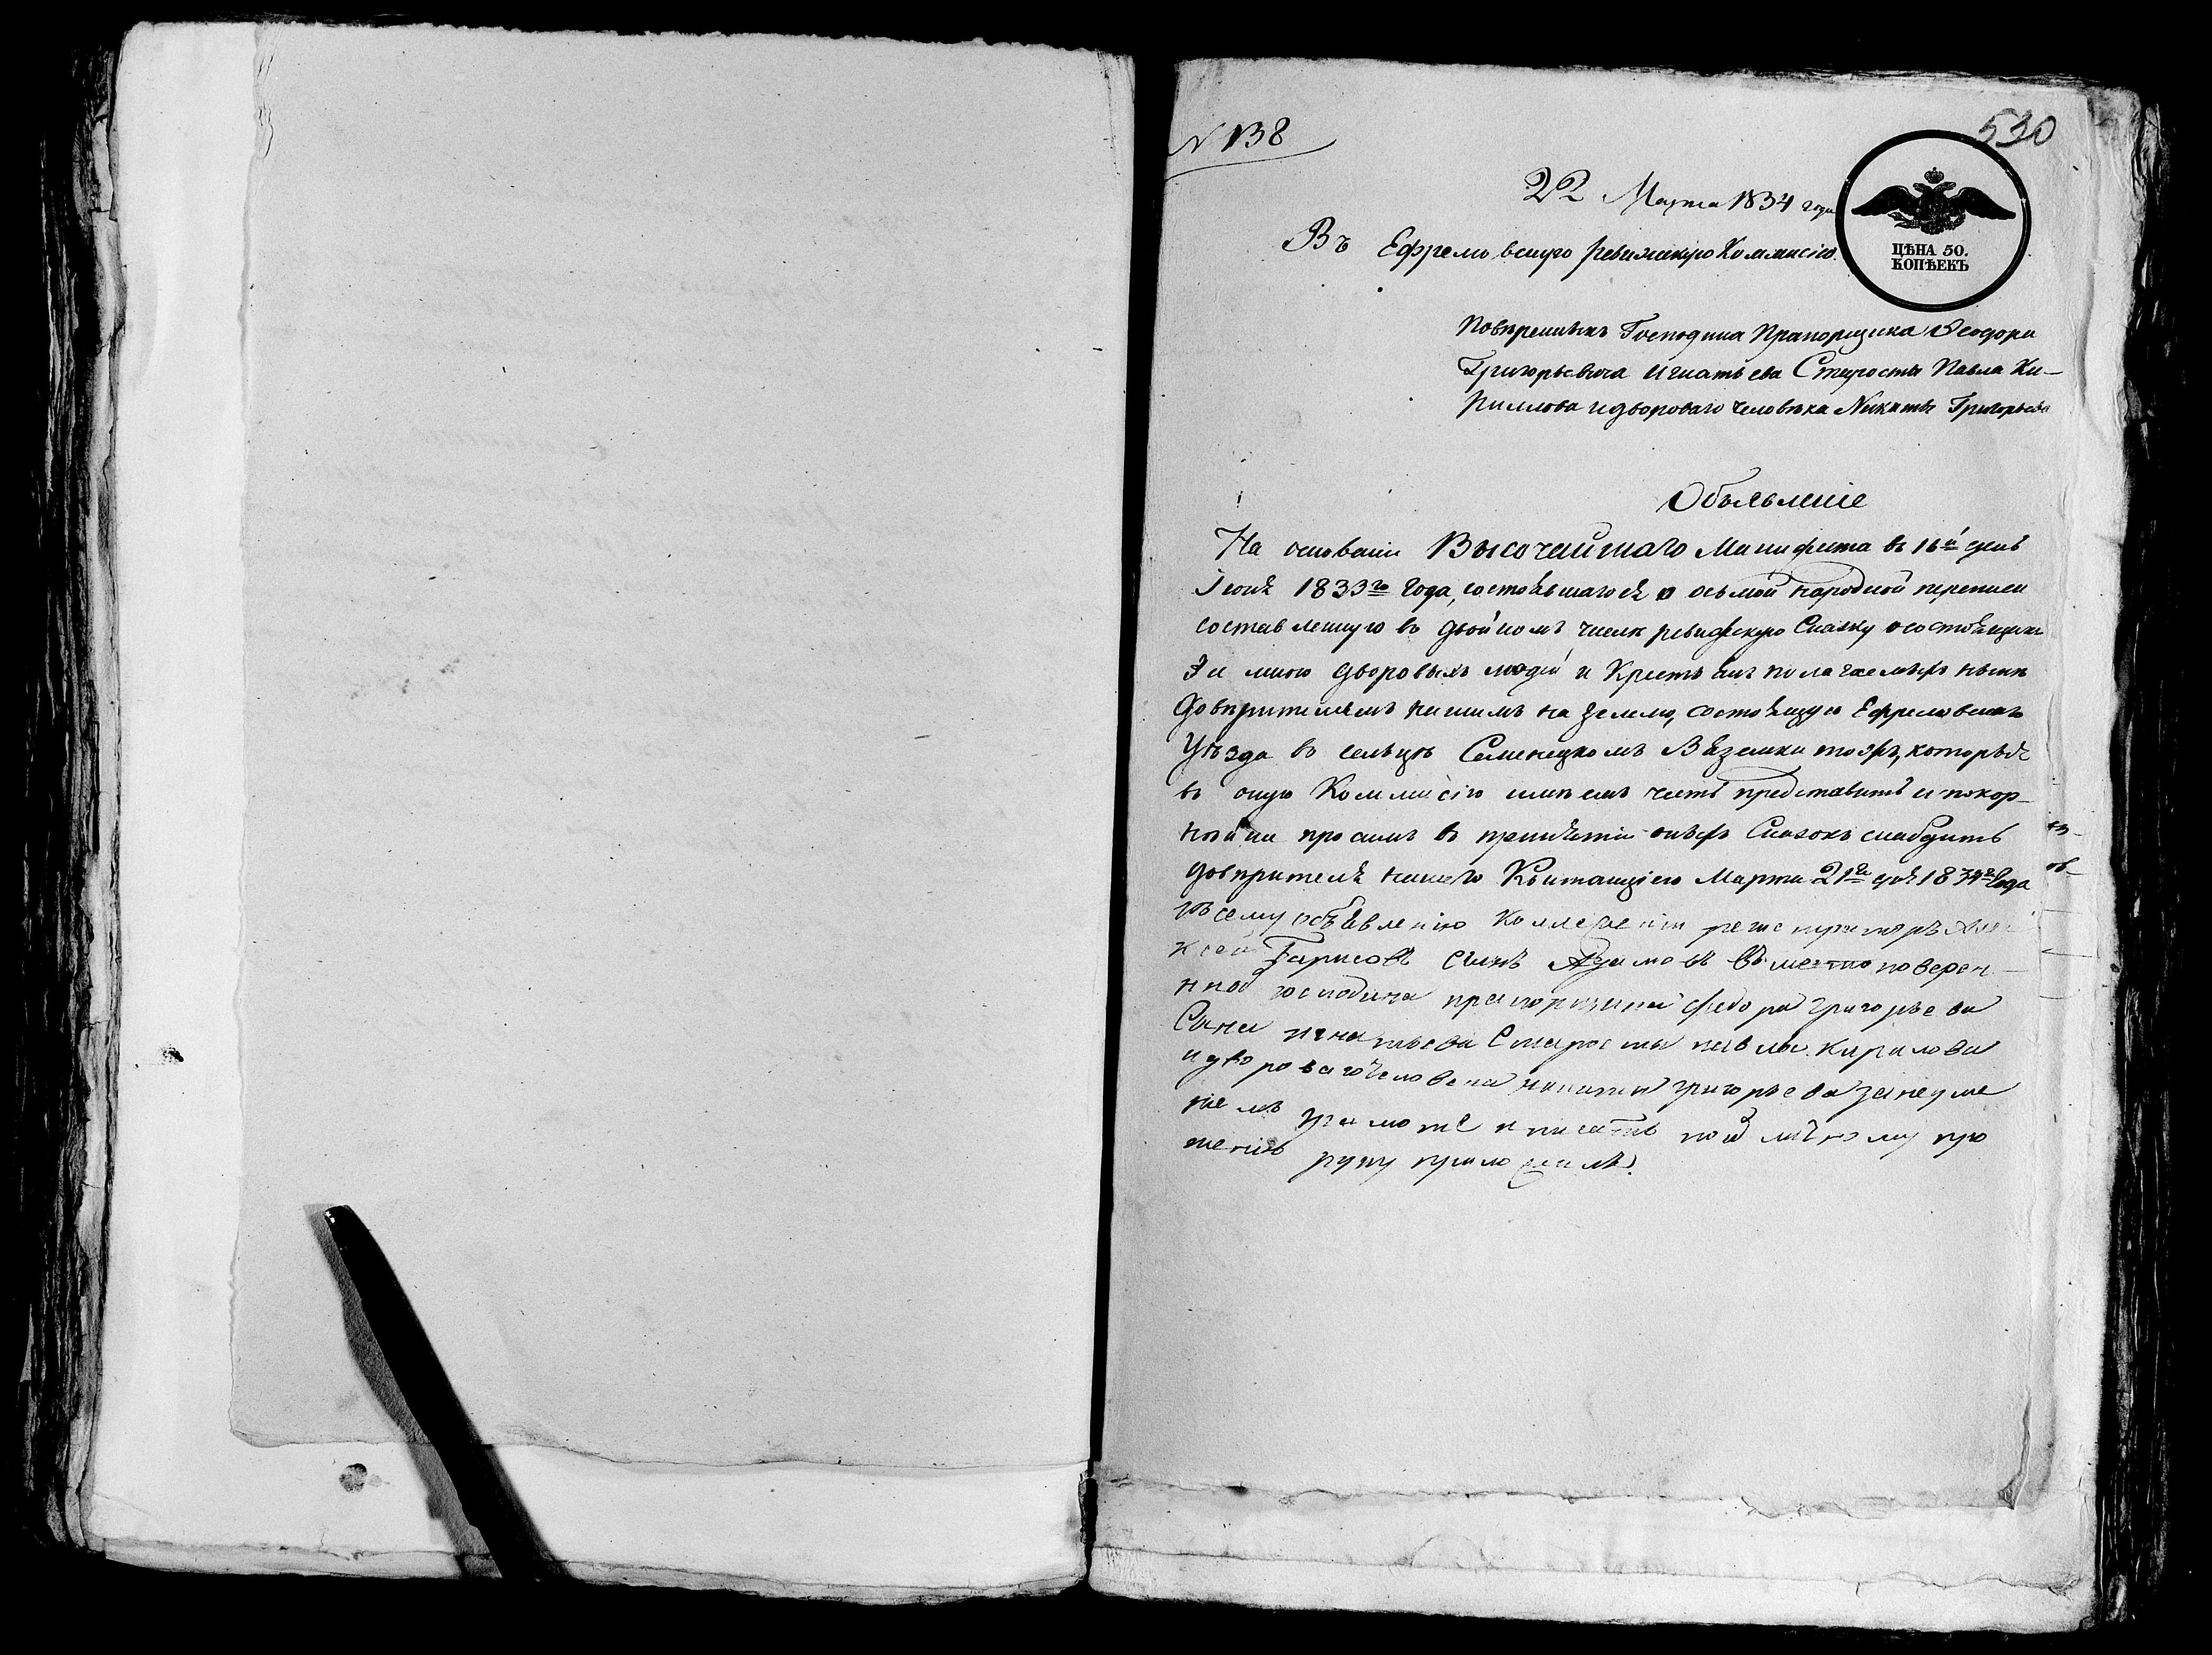 N 138
530
22 Марта 1834 года
Въ Ефремовскую Ревижскую Коммисію.
ЦѢНА 50.
КОПѢЕКЪ
Повѣренныхъ Господина Прапорщика Ѳеодора
Григорьевича Игнатьева Старосты Павла Ки-
риллова и двороваго человѣка Никиты Григорьева
Объявленіе
На основаніи Высочайшаго Манифеста въ 16й день
Іюня 1833го Года, состоявшагося о осьмой народной переписи
составленную въ двойномъ числѣ ревижскую Сказку о состоящихъ
за дворовыхъ людей и Крестьянъ полагаемыхъ нынѣ
Довѣрителемъ нашимъ на землю, состоящую Ефремовскаго
Уѣзда въ сельцѣ Семенецкомъ Вяземки тожъ, которыя
въ оную Коммисію имѣемъ честь представить и покор-
нѣйше просимъ въ принятіи оныхъ Сказокъ снабдить
довѣрителя нашего Квитанціею Марта 21го дня 1834го Года
Къ сему объявленію Коллежскій регистраторъ Але
ксей Барисовъ сынъ вместо поверен-
нной господина прапорщика федора григорьева
Сына игнатьева Старосты павла кирилова
и двороваго человека никиты григорьева за неуме
ніемъ грамоте и писать по их личному про
шенію руку приложилъ.